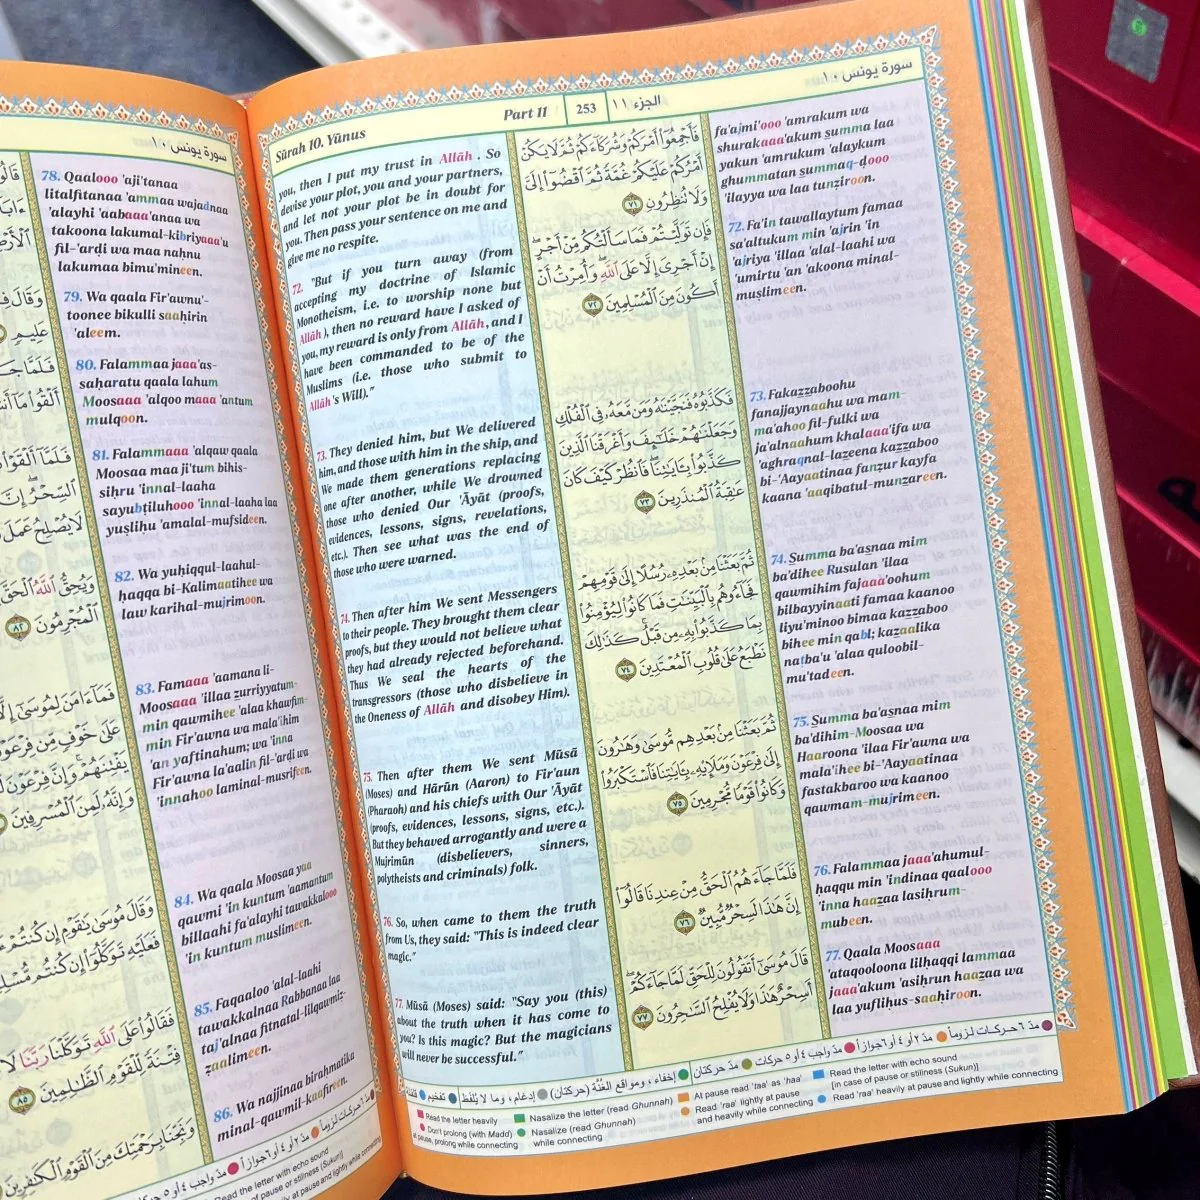 سورة يونس ١٠
78. Qaalooo 'aji'tanaa
litalfitanaa 'ammaa wajadnaa
'alayhi 'aabaaa'anaa wa
takoona lakumal-kibriyaaa'u
fil-'arḍi wa maa naḥnu
lakumaa bimu'mineen.
79. Wa qaala Fir'awnu'-
toonee bikulli saaḥirin
'aleem.
80. Falammaa jaaa'as-
saḥaratu qaala lahum
Moosaaa 'alqoo maaa 'antum
mulqoon.
81. Falammaaa 'alqaw qaala
Moosaa maa ji'tum bihis-
siḥru 'innal-laaha
sayubṭiluhooo 'innal-laaha laa
yuṣliḥu 'amalal-mufsideen.
82. Wa yuhiqqul-laahul-
ḥaqqa bi-Kalimaatihee wa
law karihal-mujrimoon.
83. Famaaa 'aamana li-
Moosaaa 'illaa ẕurriyyatum-
min qawmihee 'alaa khawfim-
min Fir'awna wa mala'ihim
'an yaftinahum; wa 'inna
Fir'awna la'aalin fil-'arḍi wa
'innahoo laminal-musrifeen.
84. Wa qaala Moosaa yaa
qawmi 'in kuntum 'aamantum
billaahi fa'alayhi tawakkalooo
'in kuntum muslimeen.
85. Faqaaloo 'alal-laahi
tawakkalnaa Rabbanaa laa
taj'alnaa fitnatal-lilqawmiz-
ẓaalimeen.
86. Wa najjinaa biraḥmatika
minal-qawmil-kaafireen.
Sûrah 10. Yânus
Part 11
253
الجزء ١١
سورة يونس ١٠
you, then I put my trust in Allâh . So
devise your plot, you and your partners,
and let not your plot be in doubt for
you. Then pass your sentence on me and
give me no respite.
72. "But if you turn away (from
accepting my doctrine of Islamic
Monotheism, i.e. to worship none but
Allâh ), then no reward have I asked of
you, my reward is only from Allâh, and I
have been commanded to be of the
Muslims (i.e. those who submit to
Allâh's Will)."
73. They denied him, but We delivered
him, and those with him in the ship, and
We made them generations replacing
one after another, while We drowned
those who denied Our 'Âyât (proofs,
evidences, lessons, signs, revelations,
etc.). Then see what was the end of
those who were warned.
74. Then after him We sent Messengers
to their people. They brought them clear
proofs, but they would not believe what
they had already rejected beforehand.
Thus We seal the hearts of the
transgressors (those who disbelieve in
the Oneness of Allâh and disobey Him).
75. Then after them We sent Mûsâ
(Moses) and Hârûn (Aaron) to Fir'aun
(Pharaoh) and his chiefs with Our 'Âyât
(proofs, evidences, lessons, signs, etc.).
But they behaved arrogantly and were a
Mujrimûn (disbelievers, sinners,
polytheists and criminals) folk.
76. So, when came to them the truth
from Us, they said: "This is indeed clear
magic."
77. Mûsâ (Moses) said: "Say you (this)
about the truth when it has come to
you? Is this magic? But the magicians
will never be successful."
فَأَجْمِعُوٓا۟ أَمْرَكُمْ وَشُرَكَآءَكُمْ ثُمَّ لَا يَكُنْ
أَمْرُكُمْ عَلَيْكُمْ غُمَّةً ثُمَّ ٱقْضُوٓا۟ إِلَىَّ
وَلَا تُنظِرُونِ ٧١
فَإِن تَوَلَّيْتُمْ فَمَا سَأَلْتُكُم مِّنْ أَجْرٍ ۖ
إِنْ أَجْرِىَ إِلَّا عَلَى ٱللَّهِ ۖ وَأُمِرْتُ أَنْ
أَكُونَ مِنَ ٱلْمُسْلِمِينَ ٧٢
فَكَذَّبُوهُ فَنَجَّيْنَٰهُ وَمَن مَّعَهُۥ فِى ٱلْفُلْكِ
وَجَعَلْنَٰهُمْ خَلَٰٓئِفَ وَأَغْرَقْنَا ٱلَّذِينَ
كَذَّبُوا۟ بِـَٔايَٰتِنَا ۖ فَٱنظُرْ كَيْفَ كَانَ
عَٰقِبَةُ ٱلْمُنذَرِينَ ٧٣
ثُمَّ بَعَثْنَا مِنۢ بَعْدِهِۦ رُسُلًا إِلَىٰ قَوْمِهِمْ
فَجَآءُوهُم بِٱلْبَيِّنَٰتِ فَمَا كَانُوا۟ لِيُؤْمِنُوا۟
بِمَا كَذَّبُوا۟ بِهِۦ مِن قَبْلُ ۚ كَذَٰلِكَ
نَطْبَعُ عَلَىٰ قُلُوبِ ٱلْمُعْتَدِينَ ٧٤
ثُمَّ بَعَثْنَا مِنۢ بَعْدِهِم مُّوسَىٰ وَهَٰرُونَ
إِلَىٰ فِرْعَوْنَ وَمَلَإِيهِۦ بِـَٔايَٰتِنَا فَٱسْتَكْبَرُوا۟
وَكَانُوا۟ قَوْمًا مُّجْرِمِينَ ٧٥
فَلَمَّا جَآءَهُمُ ٱلْحَقُّ مِنْ عِندِنَا قَالُوٓا۟
إِنَّ هَٰذَا لَسِحْرٌ مُّبِينٌ ٧٦
قَالَ مُوسَىٰٓ أَتَقُولُونَ لِلْحَقِّ لَمَّا جَآءَكُمْ ۖ
أَسِحْرٌ هَٰذَا وَلَا يُفْلِحُ ٱلسَّٰحِرُونَ ٧٧
fa'ajmi'ooo 'amrakum wa
shurakaaa'akum summa laa
yakun 'amrukum 'alaykum
ghummatan summaq-ḍooo
'ilayya wa laa tunẓiroon.
72. Fa'in tawallaytum famaa
sa'altukum min 'ajrin 'in
'ajriya 'illaa 'alal-laahi wa
'umirtu 'an 'akoona minal-
muṣlimeen.
73. Fakazzaboohu
fanajjaynaahu wa mam-
ma'ahoo fil-fulki wa
ja'alnaahum khalaaa'ifa wa
'aghraqnal-lazeena kazzaboo
bi-'Aayaatinaa fanẓur kayfa
kaana 'aaqibatul-munzareen.
74. Summa ba'asnaa mim
ba'dihee Rusulan 'ilaa
qawmihim fajaaa'oohum
bilbayyinaati famaa kaanoo
liyu'minoo bimaa kazzaboo
bihee min qabl; kazaalika
naṭba'u 'alaa quloobil-
mu'tadeen.
75. Summa ba'asnaa mim
ba'dihim-Moosaa wa
Haaroona 'ilaa Fir'awna wa
mala'ihee bi-'Aayaatinaa
fastakbaroo wa kaanoo
qawmam-mujrimeen.
76. Falammaa jaaa'ahumul-
ḥaqqu min 'indinaa qaalooo
'inna haazaa lasiḥrum-
mubeen.
77. Qaala Moosaaa
'ataqooloona lilḥaqqi lammaa
jaaa'akum 'asiḥrun haazaa wa
laa yufliḥus-saaḥiroon.
مدّ ٦ حركات لزوماً مدّ ٢ أو ٤ أو ٦ جوازاً مدّ واجب ٤ أو ٥ حركات مدّ حركتان إخفاء، ومواقع الغُنَّة (حركتان) إدغام، وما لا يُلفَظ تفخيم
Read the letter heavily
Don't prolong (with Madd)
at pause, prolong while connecting
Nasalize the letter (read Ghunnah)
Nasalize (read Ghunnah)
while connecting
At pause read 'taa' as 'haa'
Read 'raa' lightly at pause
and heavily while connecting
Read the letter with echo sound
[in case of pause or stillness (Sukun)]
Read 'raa' heavily at pause and lightly while connecting